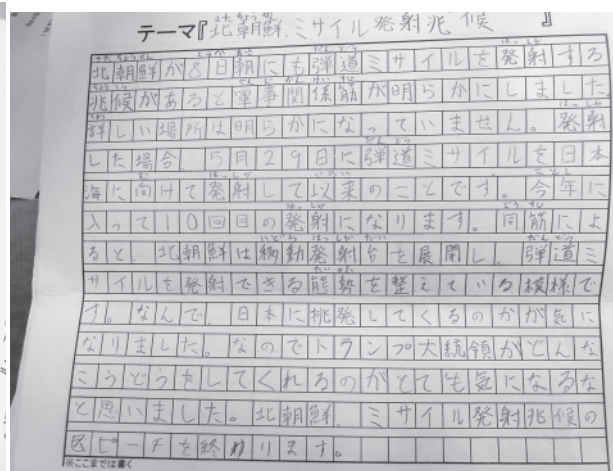 テーマ『北朝鮮、ミサイル発射兆候 』
北朝鮮が8日朝にも弾道ミサイルを発射する
兆候があると軍事関係筋が明らかにしました。
詳しい場所は明らかになっていません。発射
した場合、5月29日に弾道ミサイルを日本
海に向けて発射して以来のことです。今年に
入って10回目の発射になります。同筋によ
ると、北朝鮮は移動発射台を展開し、弾道ミ
サイルを発射できる態勢を整えている模様で
す。なんで、日本に挑発してくるのかが気に
なりました。なのでトランプ大統領がどんな
こうどうをしてくれるのがとても気になるな
と思いました。北朝鮮、ミサイル発射兆候の
ピーチを終わります。
※ここまでは書く